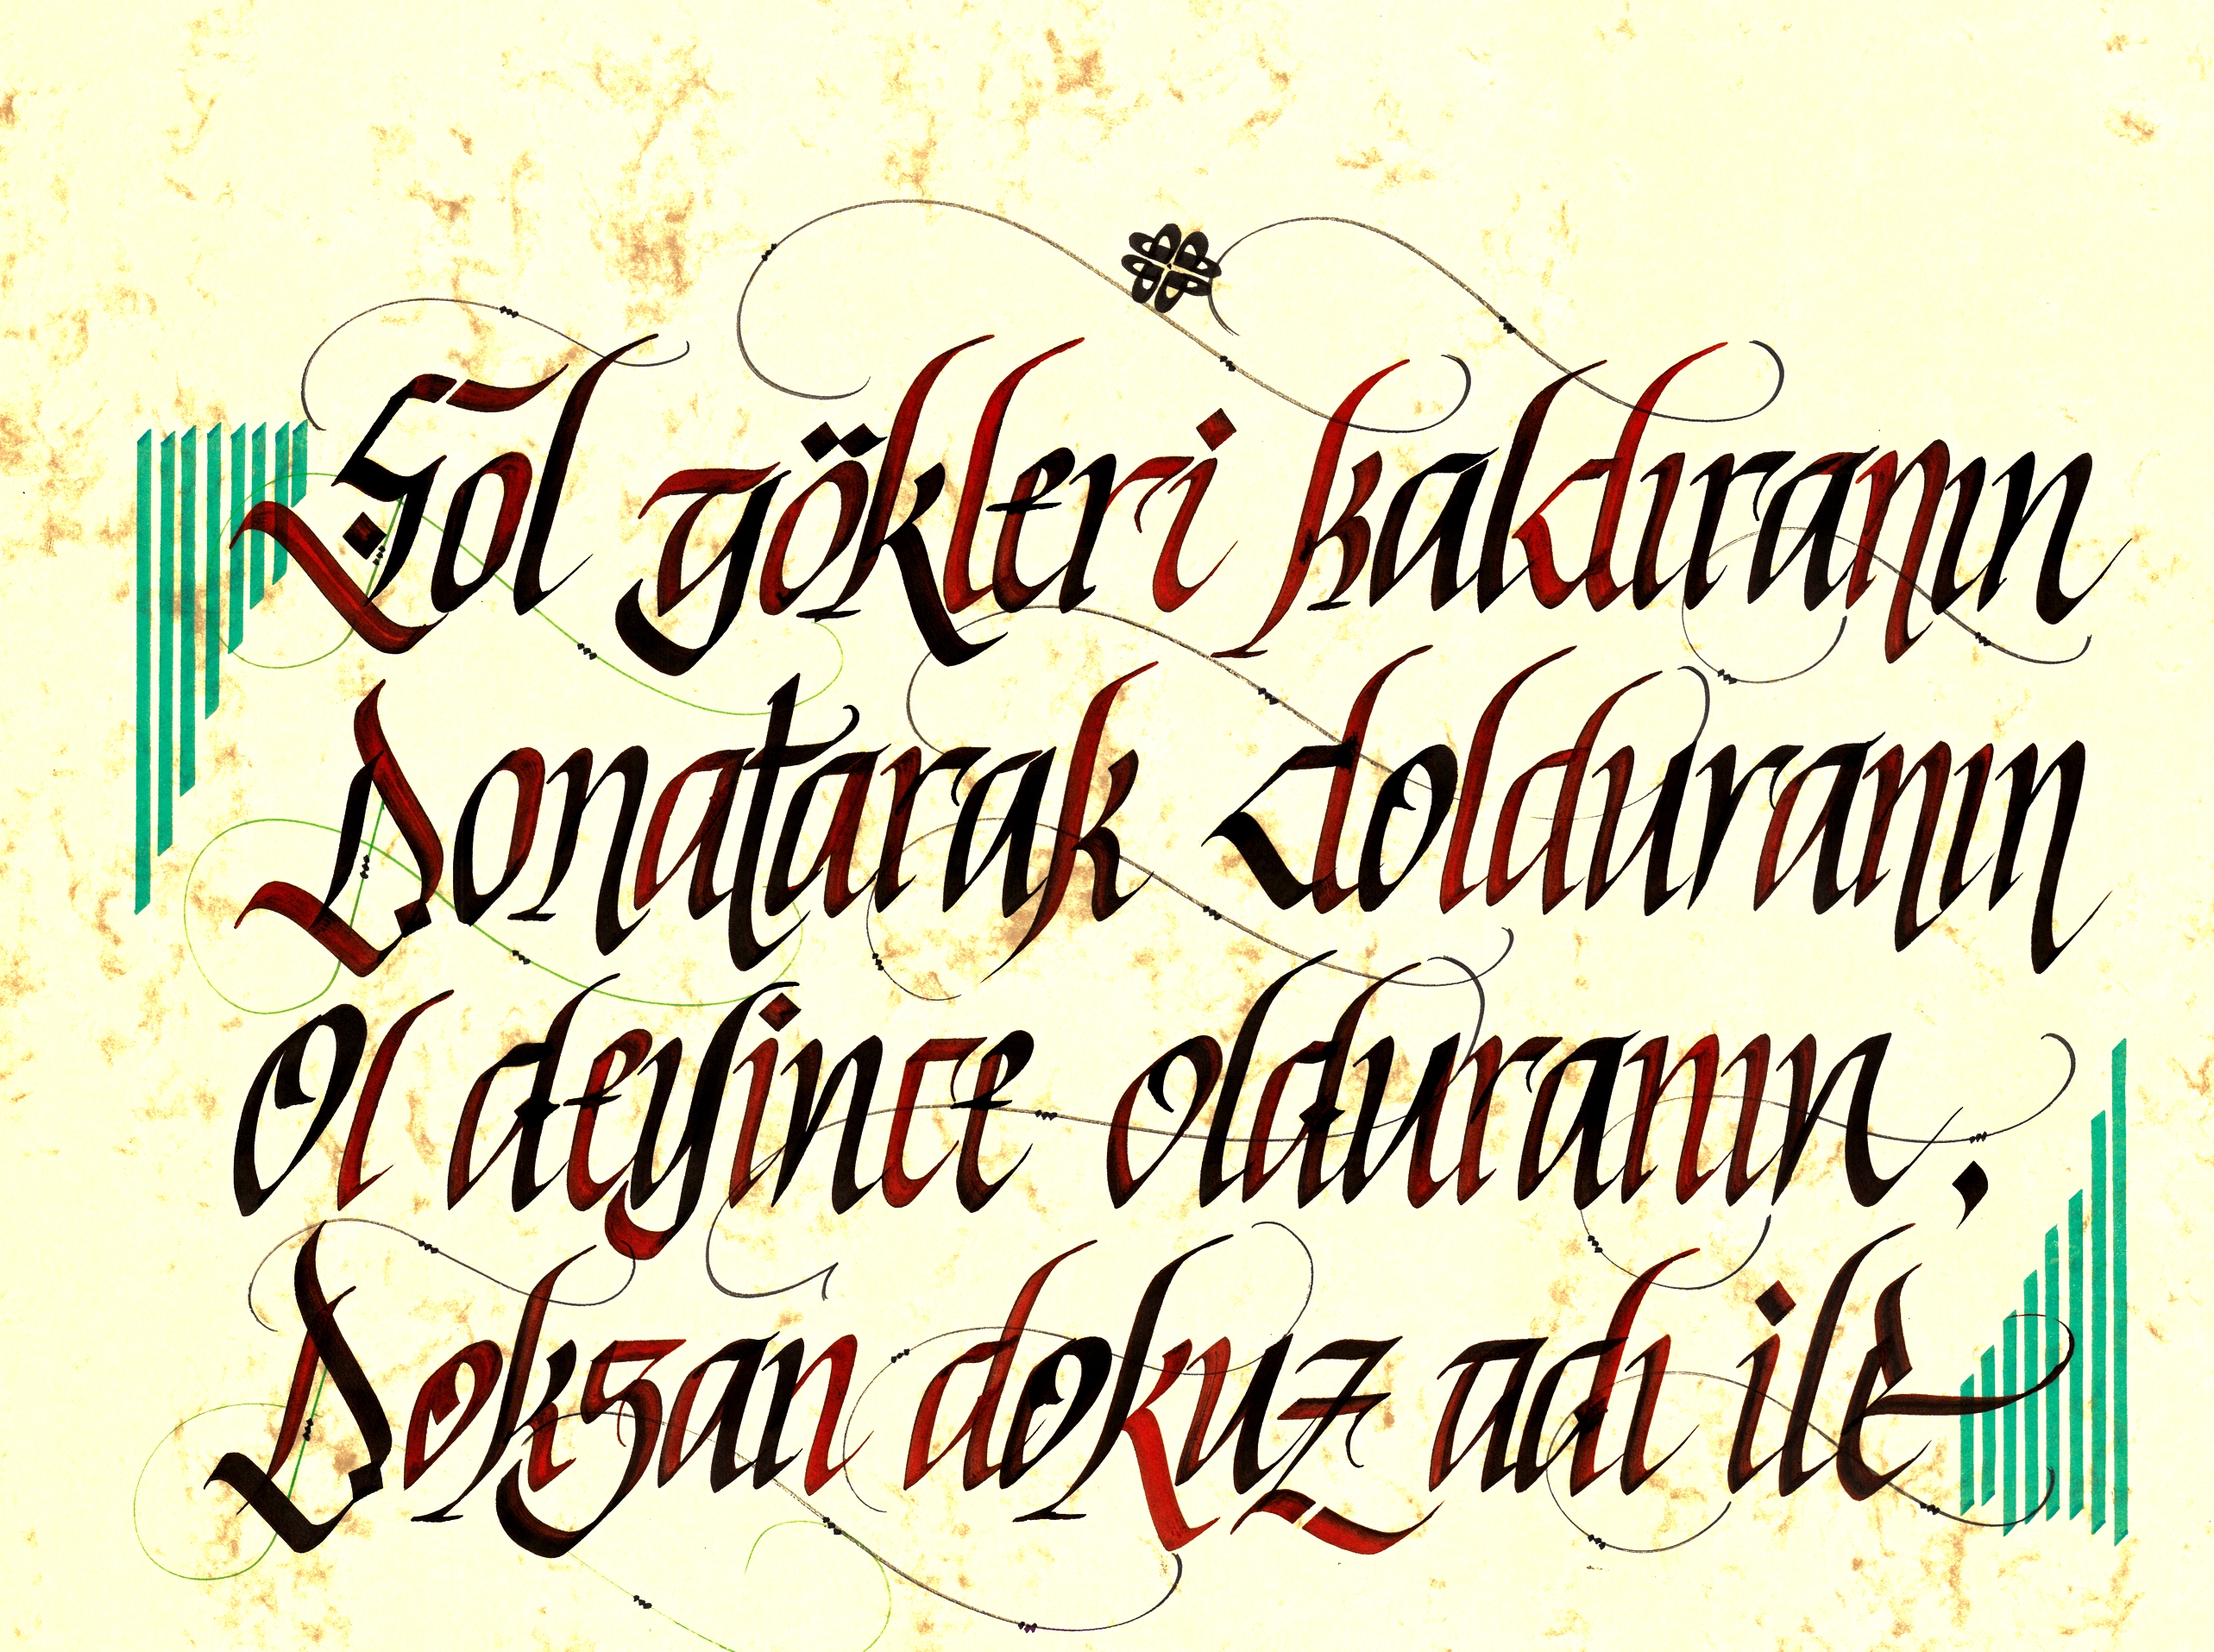 Şol gökleri kaldıranın
Donatarak dolduranın
Ol deyince olduranın,
Doksan dokuz adı ile